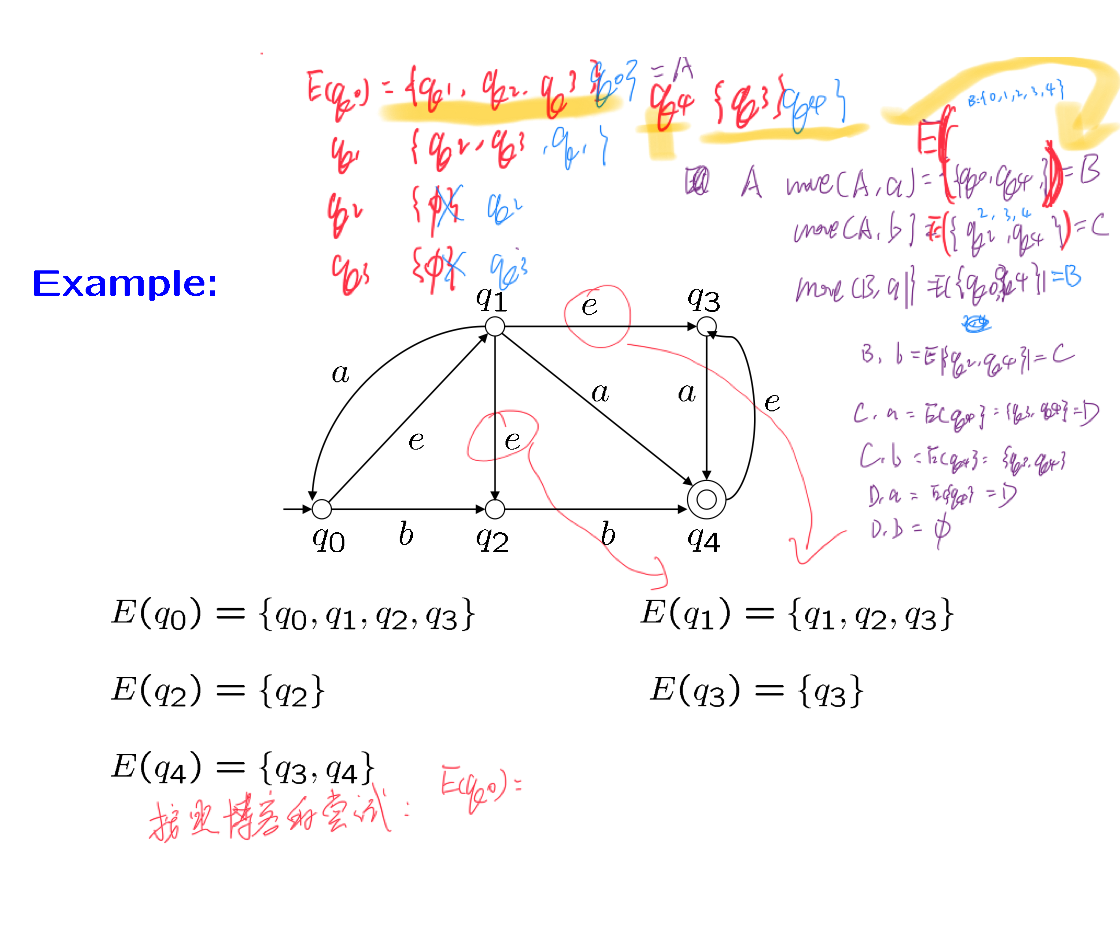 E(q0) = {q1, q2, q3 q0} = A
q4 {q3} q4}
q1 {q2, q3, q1}
q2 {ϕ} q2
q3 {ϕ} q3
B={0,1,2,3,4}
A move(A,a) = E({q0, q4,}) = B
move(A,b} = E({q2, q4}) = C
2, 3, 4
move(B,a|} = E({q0, q4}) = B
B, b = E{q2, q4}| = C
C. a = E(q4} = {q3, q4} = D
C. b = E(q4} = {q3, q4}
D. a = E{q4} = D
D. b = ϕ
Example:
q1 e q3
a a a e
e e
q0 b q2 b q4
E(q0) = {q0, q1, q2, q3}
E(q1) = {q1, q2, q3}
E(q2) = {q2}
E(q3) = {q3}
E(q4) = {q3, q4}
E(q0) =
按照博客的尝试: